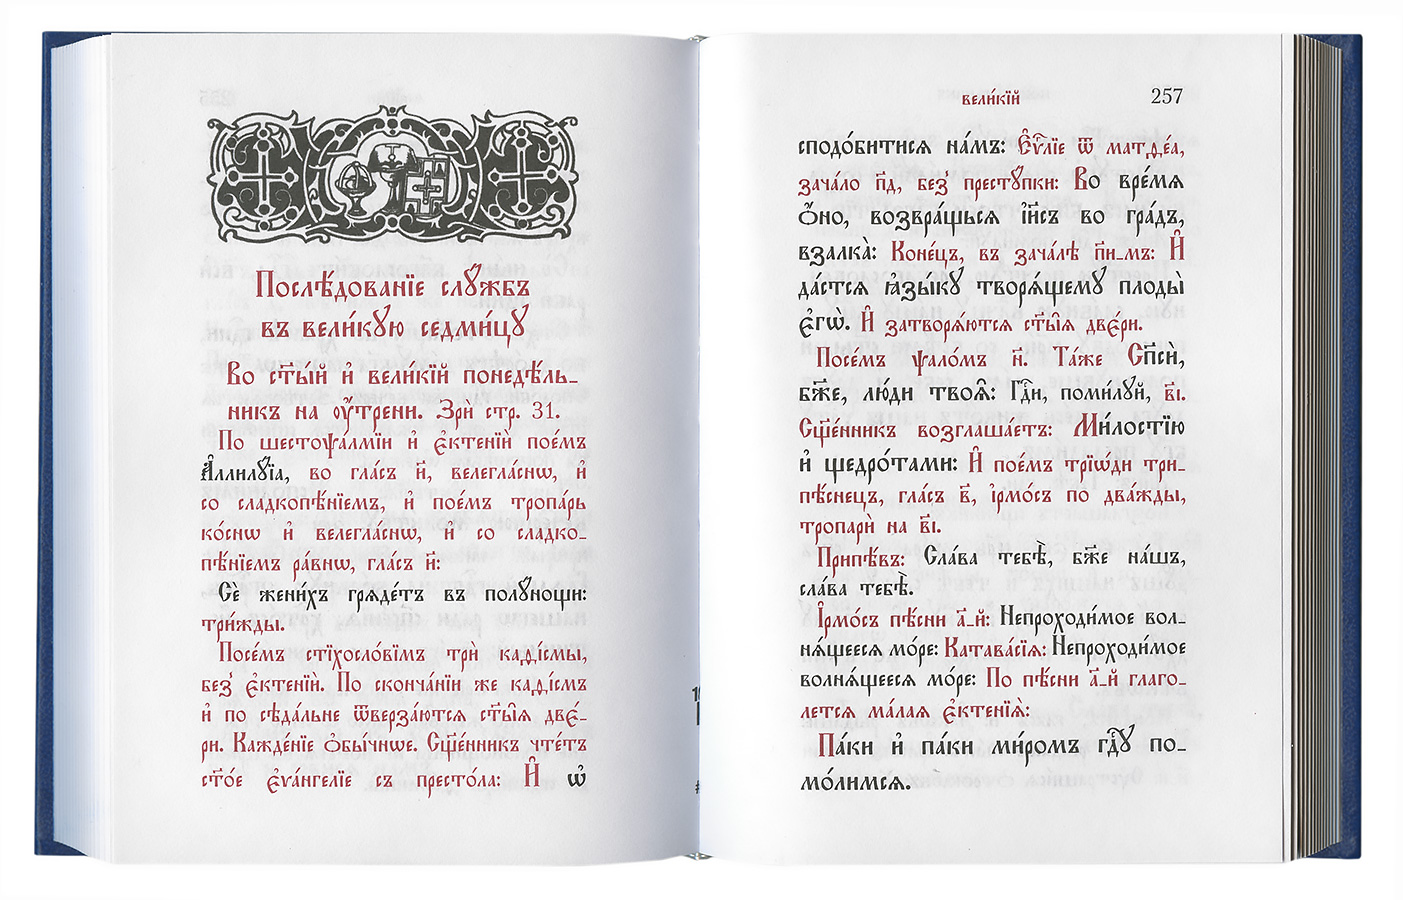 Послѣ́дованїе слꙋ́жбъ
въ вели́кꙋю седми́цꙋ
Во ст҃ы́й и҆ вели́кїй понедѣ́ль_
никъ на ᲂу҆́трени. Зрѝ стр. 31.
По шестоѱа́лмїи и҆ є҆ктенїѝ пое́мъ
А҆ллилꙋ́їа, во гла́съ и҃, велегла́снѡ, и҆
со сладкопѣ́нїемъ, и҆ пое́мъ тропа́рь
ко́снѡ и҆ велегла́снѡ, и҆ со сладко_
пѣ́нїемъ ра́внѡ, гла́съ и҃:
Сѐ жени́хъ гряде́тъ въ полꙋ́нощи:
три́жды.
Посе́мъ стїхосло́вимъ трѝ каѳі́смы,
без̾ є҆ктенїѝ. По сконча́нїи же каѳі́смъ
и҆ по сѣда́льне ѿверза́ются ст҃ы̑ѧ две́_
ри. Кажде́нїе ѻ҆бы́чное. Сщ҃е́нникъ чте́тъ
ст҃о́е є҆ѵа́нгелїе съ престо́ла: И҆ ѡ҆
вели́кїй 257
сподо́битисѧ на́мъ: Є҆ѵⷢ҇лїе ѿ матѳе́а,
зача́ло п҃д, без̾ престꙋ́пки: Во вре́мѧ
ѻ҆́но, возвра́щьсѧ і҆и҃съ во гра́дъ,
взалка̀: Коне́цъ, въ зача́лѣ п҃и_мъ: И҆
да́стсѧ ꙗ҆зы́кꙋ творѧ́щемꙋ плоды̀
є҆гѡ̀. И҆ затворѧ́ютсѧ ст҃ы̑ѧ две́ри.
Посе́мъ ѱало́мъ н҃. Та́же Сп҃сѝ,
бж҃е, лю́ди твоѧ̑: Гдⷭ҇и, поми́лꙋй, в҃і.
Сщ҃е́нникъ возглаша́етъ: Ми́лостїю
и҆ щедро́тами: И҆ пое́мъ трїѡ́ди три_
пѣ́снецъ, гла́съ в҃, і҆рмо́съ по два́жды,
тропарѝ на в҃і.
Припѣ́въ: Сла́ва тебѣ̀, бж҃е на́шъ,
сла́ва тебѣ̀.
І҆рмо́съ пѣ́сни а҃_й: Непроходи́мое вол_
нѧ́щеесѧ мо́ре: Катава́сїѧ: Непроходи́мое
волнѧ́щеесѧ мо́ре: По пѣ́сни а҃_й глаго́_
летсѧ ма́лаѧ є҆ктенїѧ̀:
Па́ки и҆ па́ки ми́ромъ гдⷭ҇ꙋ по_
мо́лимсѧ.